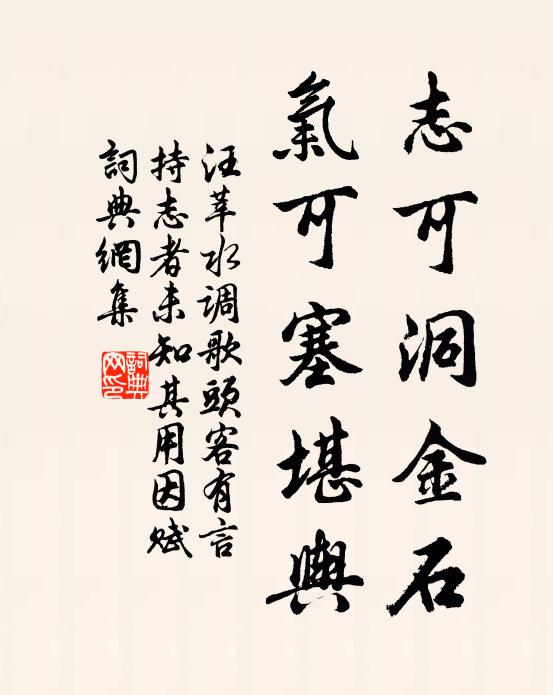 志可洞金石
氣可塞堪輿
汪莘水調歌頭客有言
持志者未知其用因賦
詞典網集
詞典網印